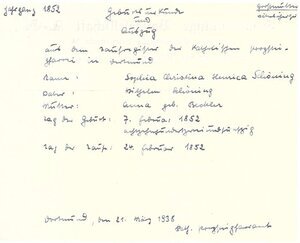 Jahrgang 1852
Geburtsurkunde
und
Auszug
aus dem Taufregister der
in Dortmund
Name : Sophia Christina Henrica Schöning
Vater : Wilhelm Schöning
Mutter : Anna geb. Beckler
Tag der Geburt: 7. Februar 1852
Tag der Taufe: 24. Februar 1852
Dortmund, den 21. März 1938